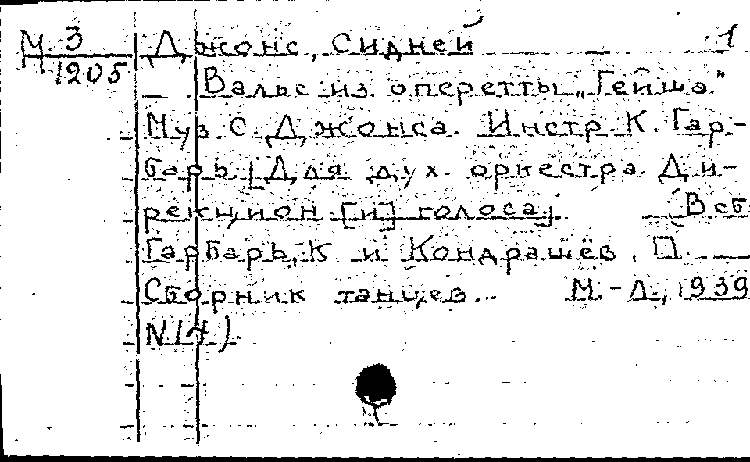 М 3 Джонс, Сидней 1
1205 Вальс из оперетты „Гейша"
Муз. С. Джонса. Инстр. К. Гар-
барь [Для дух. оркестра. Ди-
рекцион [и] голоса].     В сб.
Гарбарь, К. и Кондрашёв, П.
Сборник танцев.. М.-Л., 1939
N